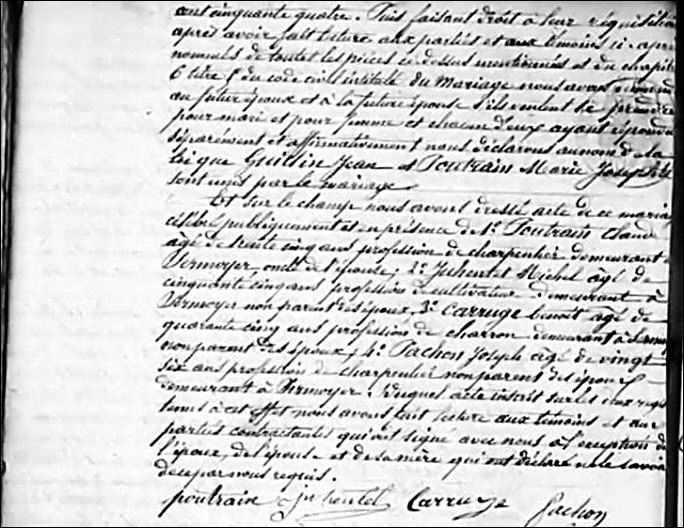 cent cinquante quatre. Puis faisant droit à leur réquisition
après avoir fait lecture aux parties et aux témoins ci-après
nommés de toutes les pièces ci-dessus mentionnées et du chapitre
6 titre 5 du code civil intitulé du Mariage nous avons demandé
au futur époux et à la future épouse s'ils veulent se prendre
pour mari et pour femme et chacun d'eux ayant répondu
séparément et affirmativement nous déclarons au nom de la
loi que Guillin Jean et Poutrain Marie Josephte
sont unis par le mariage
Et sur le champ nous avons dressé acte de ce mariage
célébré publiquement et en présence de 1° Poutrain Claude
agé de trente cinq ans profession de charpentier demeurant à
Sermoyer, oncle de l'épouse; 2° Michel agé de
cinquante cinq ans profession de cultivateur demeurant à
Sermoyer non parent des époux, 3° Carruge benoit agé de
quarante cinq ans profession de charron demeurant à Sermoyer
non parent des époux; 4° Pachon Joseph agé de vingt
six ans profession de charpentier non parent des époux
demeurant à Sermoyer. Duquel acte inscrit sur les deux registres
tenus à cet effet nous avons fait lecture aux témoins et aux
parties contractantes qui ont signé avec nous à l'exception de
l'époux, de l'épouse et de sa mère qui ont déclaré ne le savoir
de ce par nous requis.
poutrain Carruge Pachon